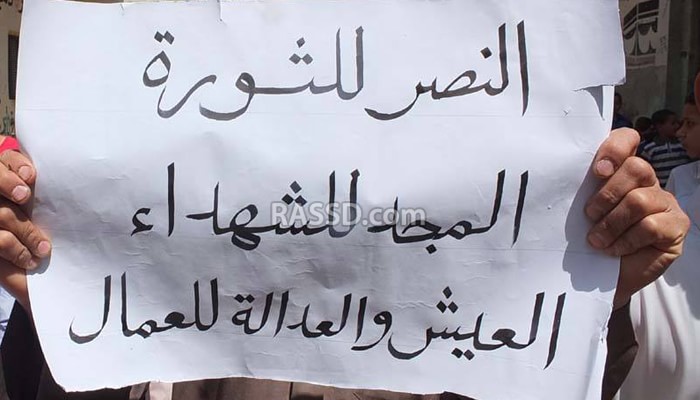 النصر للثورة
المجد للشهداء
RASSD.com
العيش والعدالة للعمال